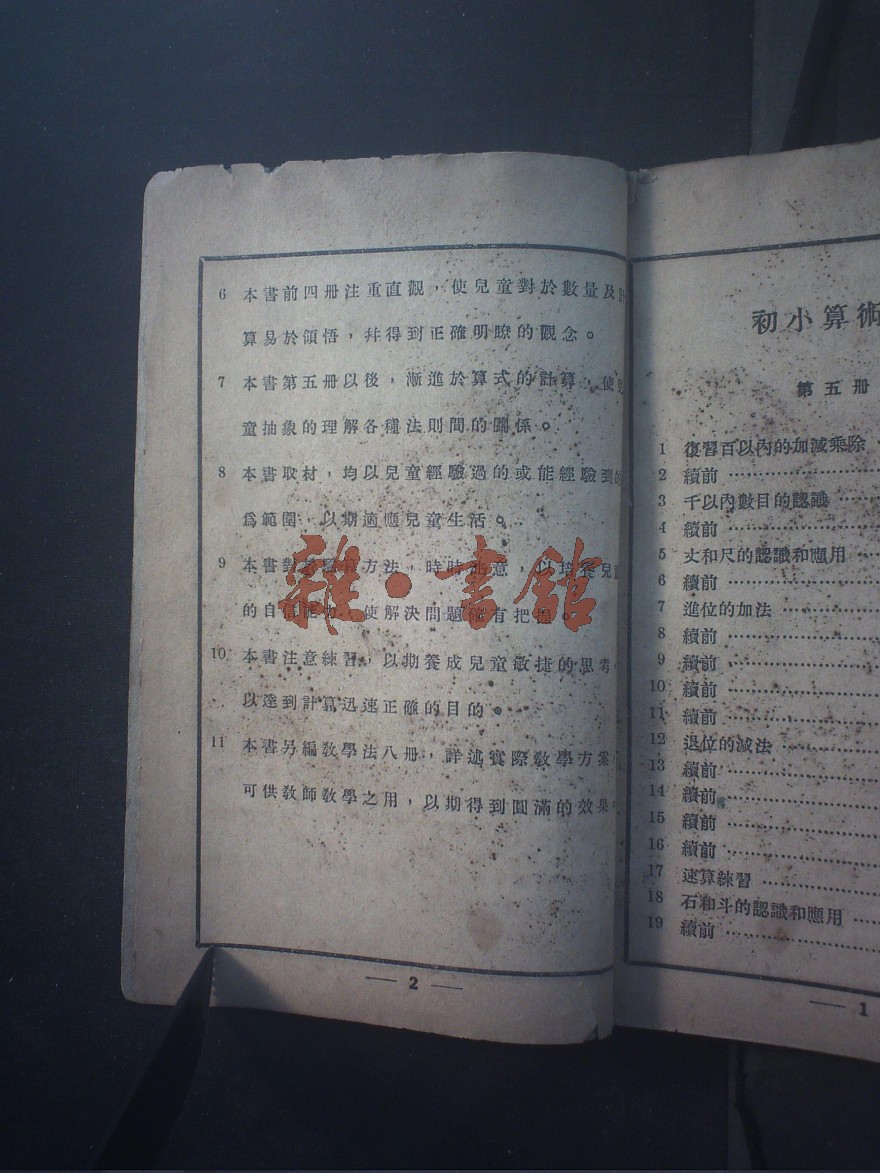 6 本書前四册注重直觀，使兒童對於數量及計
算易於領悟，幷得到正確明瞭的觀念。
7 本書第五册以後，漸進於算式的計算，使兒
童抽象的理解各種法則間的關係。
8 本書取材，均以兒童經驗過的或能經驗到的
爲範圍，以期適應兒童生活。
9 本書對於 方法，時時 意，以培養兒
的自信能力，使解決問題 有把握。
10 本書注意練習，以期養成兒童敏捷的思考
以達到計算迅速正確的目的。
11 本書另編敎學法八册，詳述實際敎學方案
可供敎師敎學之用，以期得到圓滿的效果
— 2 —
雜·書館
初小算術
第五册
1 復習百以內的加減乘除
2 續前
3 千以內數目的認識
4 續前
5 丈和尺的認識和應用
6 續前
7 進位的加法
8 續前
9 續前
10 續前
11 續前
12 退位的減法
13 續前
14 續前
15 續前
16 續前
17 速算練習
18 石和斗的認識和應用
19 續前
— 1